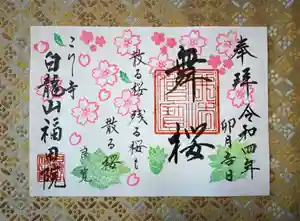 奉拝
令和四年
卯月吉日
舞桜
散る桜
残る桜も
散る桜
良寛
こり寺
白龍山福田院